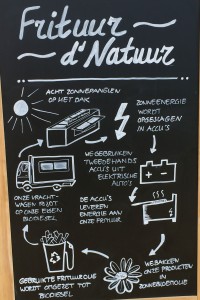 Frituur
d'Natuur
ACHT ZONNEPANELEN
OP HET DAK
ZONNEENERGIE
WORDT
OPGESLAGEN
IN ACCU'S
WE GEBRUIKEN
TWEEDEHANDS
ACCU'S UIT
ELEKTRISCHE
AUTO'S
ONZE VRACHT-
WAGEN RIJDT
OP ONZE EIGEN
BIODIESEL
DE ACCU'S
LEVEREN
ENERGIE AAN
ONZE FRITUUR
WE BAKKEN
ONZE PRODUCTEN
IN
ZONNEBLOEMOLIE
GEBRUIKTE FRITUUROLIE
WORDT OMGEZET TOT
BIODIESEL